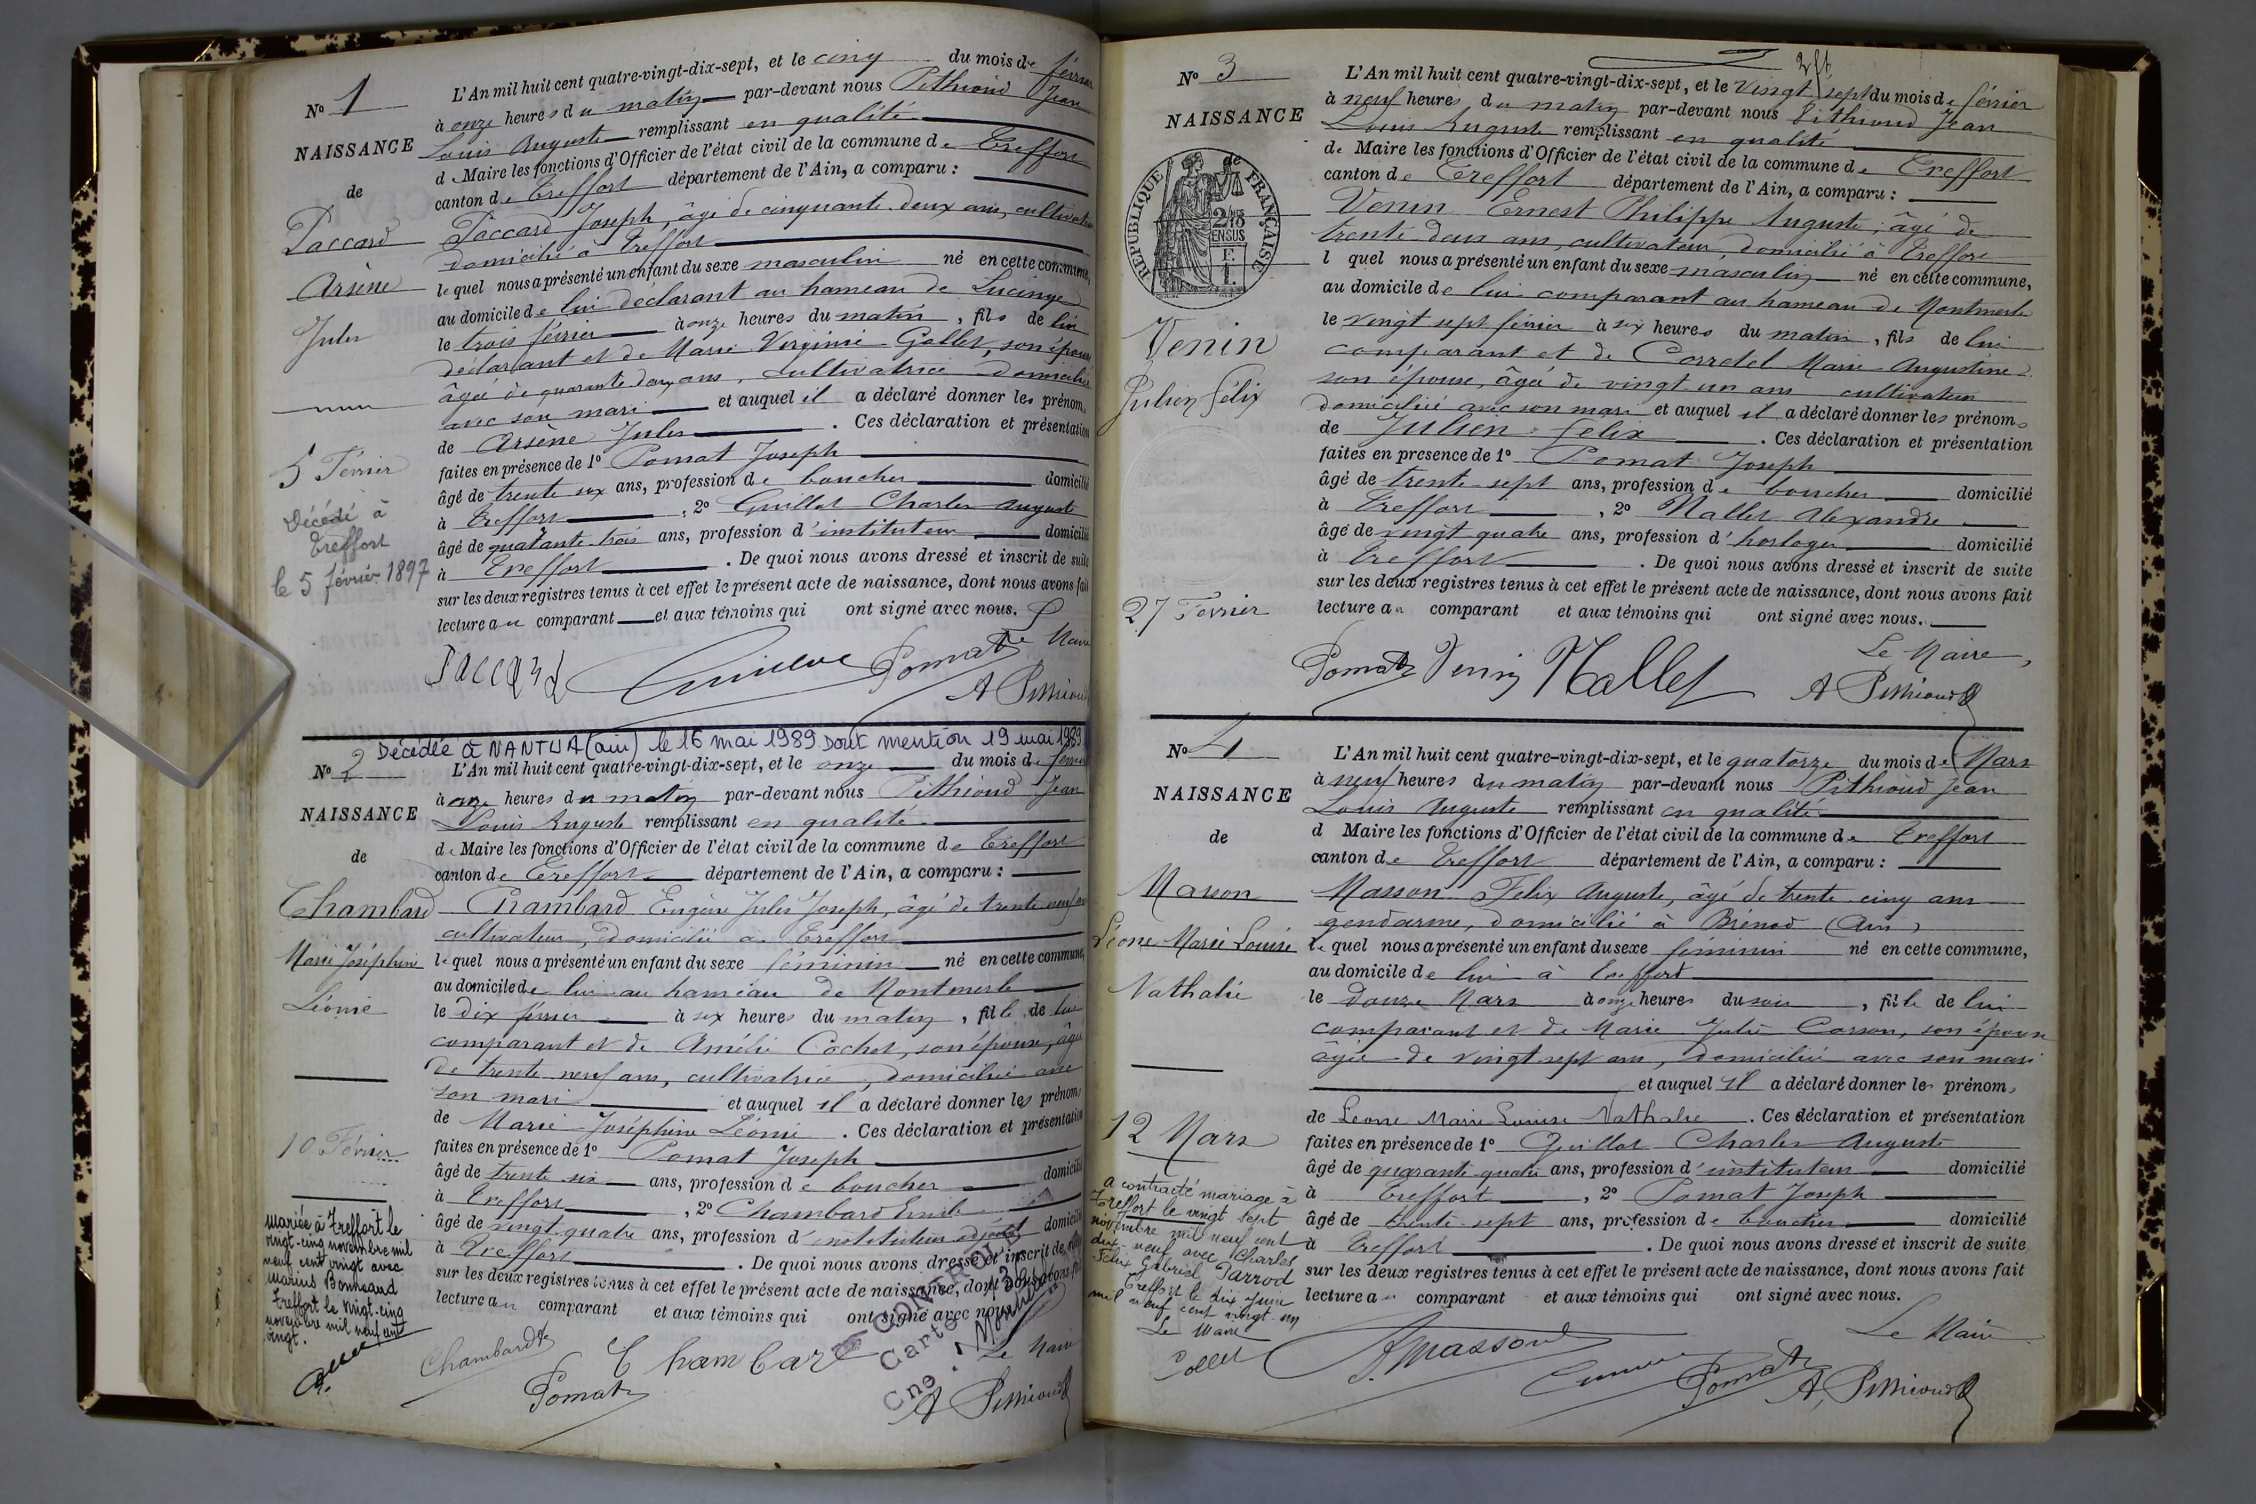 N° 1
NAISSANCE
de
Paccard
Arsène
Jules
5 Février
Décédé à
Treffort
le 5 février 1897
L'An mil huit cent quatre-vingt-dix-sept, et le cinq du mois de février
à onze heures du matin par-devant nous Pithioud Jean
Louis Auguste remplissant en qualité
de Maire les fonctions d'Officier de l'état civil de la commune de Treffort
canton de Treffort département de l'Ain, a comparu :
Paccard Joseph, âgé de cinquante deux ans, cultivateur
domicilié à Treffort
lequel nous a présenté un enfant du sexe masculin né en cette commune,
au domicile de lui déclarant au hameau de Lucinge
le trois février à onze heures du matin, fils de lui
déclarant et de Marie Virginie Gallet, son épouse
âgée de quarante deux ans, cultivatrice domiciliée
avec son mari et auquel il a déclaré donner les prénoms
de Arsène Jules . Ces déclaration et présentation
faites en présence de 1° Pomat Joseph
âgé de trente six ans, profession de boucher domicilié
à Treffort , 2° Guillot Charles Auguste
âgé de quarante trois ans, profession d'instituteur domicilié
à Treffort . De quoi nous avons dressé et inscrit de suite
sur les deux registres tenus à cet effet le présent acte de naissance, dont nous avons fait
lecture au comparant et aux témoins qui ont signé avec nous.
Le Maire
Paccard Guillot Pomat
A Pithioud
Décédée à NANTUA (ain) le 16 mai 1989 Dont mention 19 mai 1989
N° 2
NAISSANCE
de
Chambard
Marie Joséphine
Léonie
10 Février
mariée à Treffort le
vingt-cinq novembre mil
neuf cent vingt avec
Marius Bonnand
Treffort le vingt-cinq
novembre mil neuf cent
vingt.
L'An mil huit cent quatre-vingt-dix-sept, et le onze du mois de février
à onze heures du matin par-devant nous Pithioud Jean
Louis Auguste remplissant en qualité
de Maire les fonctions d'Officier de l'état civil de la commune de Treffort
canton de Treffort département de l'Ain, a comparu :
Chambard Eugène Jules Joseph, âgé de trente neuf ans
cultivateur, domicilié à Treffort
lequel nous a présenté un enfant du sexe féminin né en cette commune,
au domicile de lui au hameau de Montmerle
le dix février à six heures du matin, fille de lui
comparant et de Amélie Cochet, son épouse, âgée
de trente neuf ans, cultivatrice, domiciliée avec
son mari et auquel il a déclaré donner les prénoms
de Marie Joséphine Léonie . Ces déclaration et présentation
faites en présence de 1° Pomat Joseph
âgé de trente six ans, profession de boucher domicilié
à Treffort , 2° Chambard Emile
âgé de vingt quatre ans, profession d'instituteur adjoint domicilié
à Treffort . De quoi nous avons dressé et inscrit de suite
sur les deux registres tenus à cet effet le présent acte de naissance, dont nous avons fait
lecture au comparant et aux témoins qui ont signé avec nous.
CONTROLE
Carte
Cne.
Le Maire
Chambard Chambard
Pomat
A Pithioud
N° 3
NAISSANCE
de
RÉPUBLIQUE FRANÇAISE
2/10 EN SUS
Venin
Julien Félix
27 Février
L'An mil huit cent quatre-vingt-dix-sept, et le vingt sept du mois de février
à neuf heures du matin par-devant nous Pithioud Jean
Louis Auguste remplissant en qualité
de Maire les fonctions d'Officier de l'état civil de la commune de Treffort
canton de Treffort département de l'Ain, a comparu :
Venin Ernest Philippe Auguste, âgé de
trente deux ans, cultivateur, domicilié à Treffort
lequel nous a présenté un enfant du sexe masculin né en cette commune,
au domicile de lui comparant au hameau de Montmerle
le vingt sept février à six heures du matin, fils de lui
comparant et de Corretel Marie Augustine
son épouse, âgée de vingt un ans cultivateur
domiciliée avec son mari et auquel il a déclaré donner les prénoms
de Julien Felix . Ces déclaration et présentation
faites en présence de 1° Pomat Joseph
âgé de trente sept ans, profession de boucher domicilié
à Treffort , 2° Mallet Alexandre
âgé de vingt quatre ans, profession d'horloger domicilié
à Treffort . De quoi nous avons dressé et inscrit de suite
sur les deux registres tenus à cet effet le présent acte de naissance, dont nous avons fait
lecture au comparant et aux témoins qui ont signé avec nous.
Le Maire,
Pomat Venin Mallet A Pithioud
N° 4
NAISSANCE
de
Masson
Léone Marie Louise
Nathalie
12 Mars
a contracté mariage à
Treffort le vingt sept
novembre mil neuf cent
dix-neuf avec Charles
Félix Gabriel Parrod
Treffort le dix juin
mil neuf cent vingt un
Le Maire
Collet
L'An mil huit cent quatre-vingt-dix-sept, et le quatorze du mois de Mars
à neuf heures du matin par-devant nous Pithioud Jean
Louis Auguste remplissant en qualité
d Maire les fonctions d'Officier de l'état civil de la commune de Treffort
canton de Treffort département de l'Ain, a comparu :
Masson Felix Auguste, âgé de trente cinq ans
gendarme, domicilié à Brénod (Ain)
lequel nous a présenté un enfant du sexe féminin né en cette commune,
au domicile de lui à Treffort
le douze Mars à onze heures du soir, fille de lui
comparant et de Marie Julie Corson, son épouse
âgée de vingt sept ans, domiciliée avec son mari
et auquel il a déclaré donner les prénoms
de Leone Marie Louise Nathalie . Ces déclaration et présentation
faites en présence de 1° Guillot Charles Auguste
âgé de quarante quatre ans, profession d'instituteur domicilié
à Treffort , 2° Pomat Joseph
âgé de trente sept ans, profession de boucher domicilié
à Treffort . De quoi nous avons dressé et inscrit de suite
sur les deux registres tenus à cet effet le présent acte de naissance, dont nous avons fait
lecture au comparant et aux témoins qui ont signé avec nous.
Le Maire
Masson Guillot Pomat A Pithioud